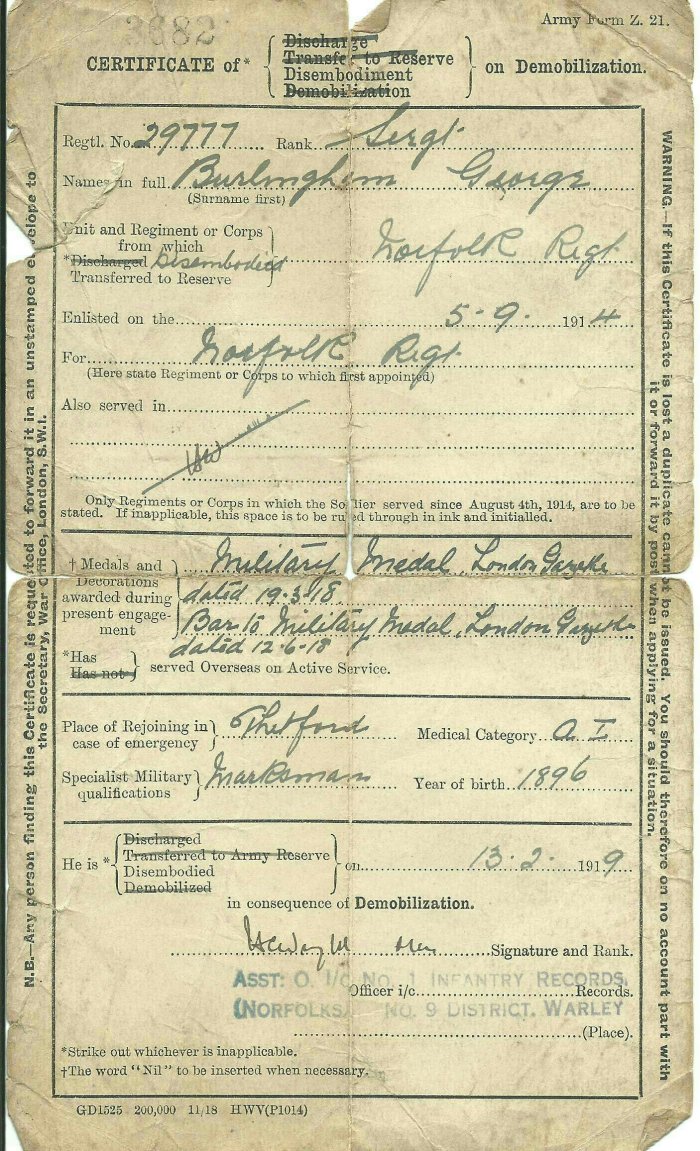 3882
Army Form Z. 21.
Discharge
Transfer to Reserve
CERTIFICATE of* Disembodiment on Demobilization.
Demobilization
Regtl. No. 29777 Rank Sergt
Names in full Burlingham George
(Surname first)
Unit and Regiment or Corps
from which Norfolk Regt
*Discharged Disembodied
Transferred to Reserve
Enlisted on the 5-9- 1914
For Norfolk Regt
(Here state Regiment or Corps to which first appointed)
Also served in
Only Regiments or Corps in which the Soldier served since August 4th, 1914, are to be
stated. If inapplicable, this space is to be ruled through in ink and initialled.
† Medals and Military Medal, London Gazette
Decorations dated 19.3.18
awarded during
present engage- Bar to Military Medal, London Gazette
ment dated 12-6-18
*Has
Has not served Overseas on Active Service.
Place of Rejoining in Thetford Medical Category A I
case of emergency
Specialist Military Marksman Year of birth 1896
qualifications
Discharged
He is * Transferred to Army Reserve on 13-2- 1919
Disembodied
Demobilized
in consequence of Demobilization.
Signature and Rank.
ASST: O. I/C No. 1 INFANTRY RECORDS,
Officer i/c Records.
(NORFOLKS) No. 9 DISTRICT. WARLEY
(Place).
*Strike out whichever is inapplicable.
†The word "Nil" to be inserted when necessary.
GD1525 200,000 11/18 HWV(P1014)
N.B.—Any person finding this Certificate is requested to forward it in an unstamped envelope to
the Secretary, War Office, London, S.W.1.
WARNING.—If this Certificate is lost a duplicate cannot be issued. You should therefore on no account part with
it or forward it by post when applying for a situation.